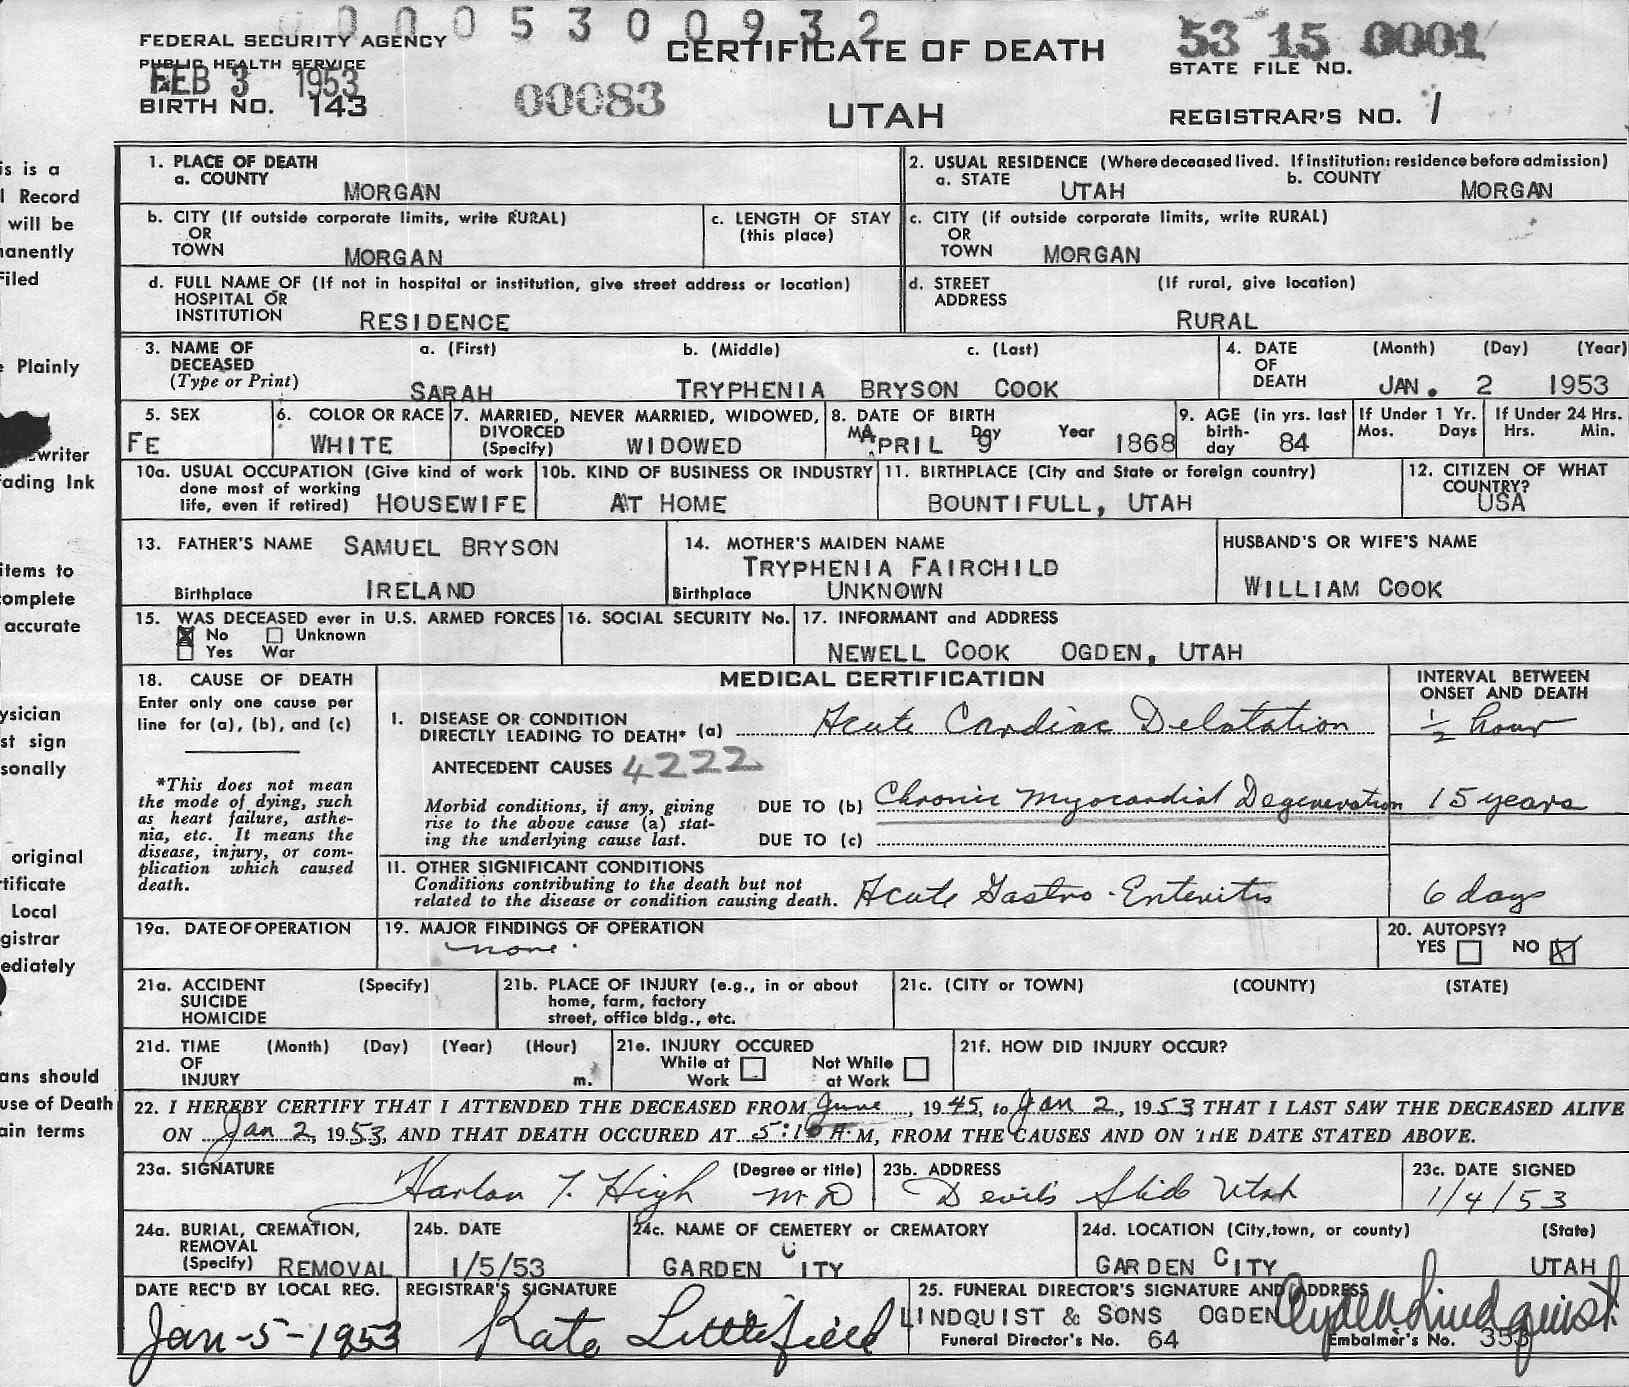 00005300932
FEDERAL SECURITY AGENCY
PUBLIC HEALTH SERVICE
FEB 3 1953
BIRTH NO. 143
00083
CERTIFICATE OF DEATH
UTAH
53 15 0001
STATE FILE NO.
REGISTRAR'S NO. 1
is is a
l Record
will be
manently
Filed
e Plainly
ewriter
ading Ink
items to
omplete
accurate
ysician
st sign
sonally
original
rtificate
Local
gistrar
ediately
ans should
use of Death
ain terms
1. PLACE OF DEATH
a. COUNTY
MORGAN
2. USUAL RESIDENCE (Where deceased lived. If institution: residence before admission)
a. STATE UTAH b. COUNTY MORGAN
b. CITY (If outside corporate limits, write RURAL)
OR
TOWN MORGAN
c. LENGTH OF STAY
(this place)
c. CITY (if outside corporate limits, write RURAL)
OR
TOWN MORGAN
d. FULL NAME OF (If not in hospital or institution, give street address or location)
HOSPITAL OR
INSTITUTION RESIDENCE
d. STREET (If rural, give location)
ADDRESS
RURAL
3. NAME OF a. (First) b. (Middle) c. (Last)
DECEASED
(Type or Print) SARAH TRYPHENIA BRYSON COOK
4. DATE (Month) (Day) (Year)
OF
DEATH JAN. 2 1953
5. SEX
FE
6. COLOR OR RACE
WHITE
7. MARRIED, NEVER MARRIED, WIDOWED,
DIVORCED
(Specify) WIDOWED
8. DATE OF BIRTH
Day Year
APRIL 9 1868
9. AGE (in yrs. last
birth-
day 84
If Under 1 Yr.
Mos. Days
If Under 24 Hrs.
Hrs. Min.
10a. USUAL OCCUPATION (Give kind of work
done most of working
life, even if retired) HOUSEWIFE
10b. KIND OF BUSINESS OR INDUSTRY
AT HOME
11. BIRTHPLACE (City and State or foreign country)
BOUNTIFULL, UTAH
12. CITIZEN OF WHAT
COUNTRY?
USA
13. FATHER'S NAME SAMUEL BRYSON
Birthplace IRELAND
14. MOTHER'S MAIDEN NAME
TRYPHENIA FAIRCHILD
Birthplace UNKNOWN
HUSBAND'S OR WIFE'S NAME
WILLIAM COOK
15. WAS DECEASED ever in U.S. ARMED FORCES
No Unknown
Yes War
16. SOCIAL SECURITY No.
17. INFORMANT and ADDRESS
NEWELL COOK OGDEN, UTAH
18. CAUSE OF DEATH
Enter only one cause per
line for (a), (b), and (c)
*This does not mean
the mode of dying, such
as heart failure, asthe-
nia, etc. It means the
disease, injury, or com-
plication which caused
death.
MEDICAL CERTIFICATION
INTERVAL BETWEEN
ONSET AND DEATH
I. DISEASE OR CONDITION
DIRECTLY LEADING TO DEATH* (a) Acute Cardiac Delatation 1/2 hour
ANTECEDENT CAUSES 4222
Morbid conditions, if any, giving
rise to the above cause (a) stat-
ing the underlying cause last.
DUE TO (b) Chronic Myocardial Degeneration 15 years
DUE TO (c)
II. OTHER SIGNIFICANT CONDITIONS
Conditions contributing to the death but not
related to the disease or condition causing death. Acute Gastro-Enteritis 6 days
19a. DATE OF OPERATION
19. MAJOR FINDINGS OF OPERATION
none
20. AUTOPSY?
YES NO
21a. ACCIDENT (Specify)
SUICIDE
HOMICIDE
21b. PLACE OF INJURY (e.g., in or about
home, farm, factory
street, office bldg., etc.
21c. (CITY or TOWN) (COUNTY) (STATE)
21d. TIME (Month) (Day) (Year) (Hour)
OF
INJURY m.
21e. INJURY OCCURED
While at Not While
Work at Work
21f. HOW DID INJURY OCCUR?
22. I HEREBY CERTIFY THAT I ATTENDED THE DECEASED FROM June, 1945, to Jan 2, 1953 THAT I LAST SAW THE DECEASED ALIVE
ON Jan 2, 1953, AND THAT DEATH OCCURED AT 5:10 A.M, FROM THE CAUSES AND ON THE DATE STATED ABOVE.
23a. SIGNATURE (Degree or title)
Harlan T. High M.D
23b. ADDRESS
Devils Slide Utah
23c. DATE SIGNED
1/4/53
24a. BURIAL, CREMATION,
REMOVAL
(Specify) REMOVAL
24b. DATE
1/5/53
24c. NAME OF CEMETERY or CREMATORY
GARDEN CITY
24d. LOCATION (City, town, or county) (State)
GARDEN CITY UTAH
DATE REC'D BY LOCAL REG.
Jan-5-1953
REGISTRAR'S SIGNATURE
Kate Littlefield
25. FUNERAL DIRECTOR'S SIGNATURE AND ADDRESS
LINDQUIST & SONS OGDEN Lindquist
Funeral Director's No. 64 Embalmer's No. 353